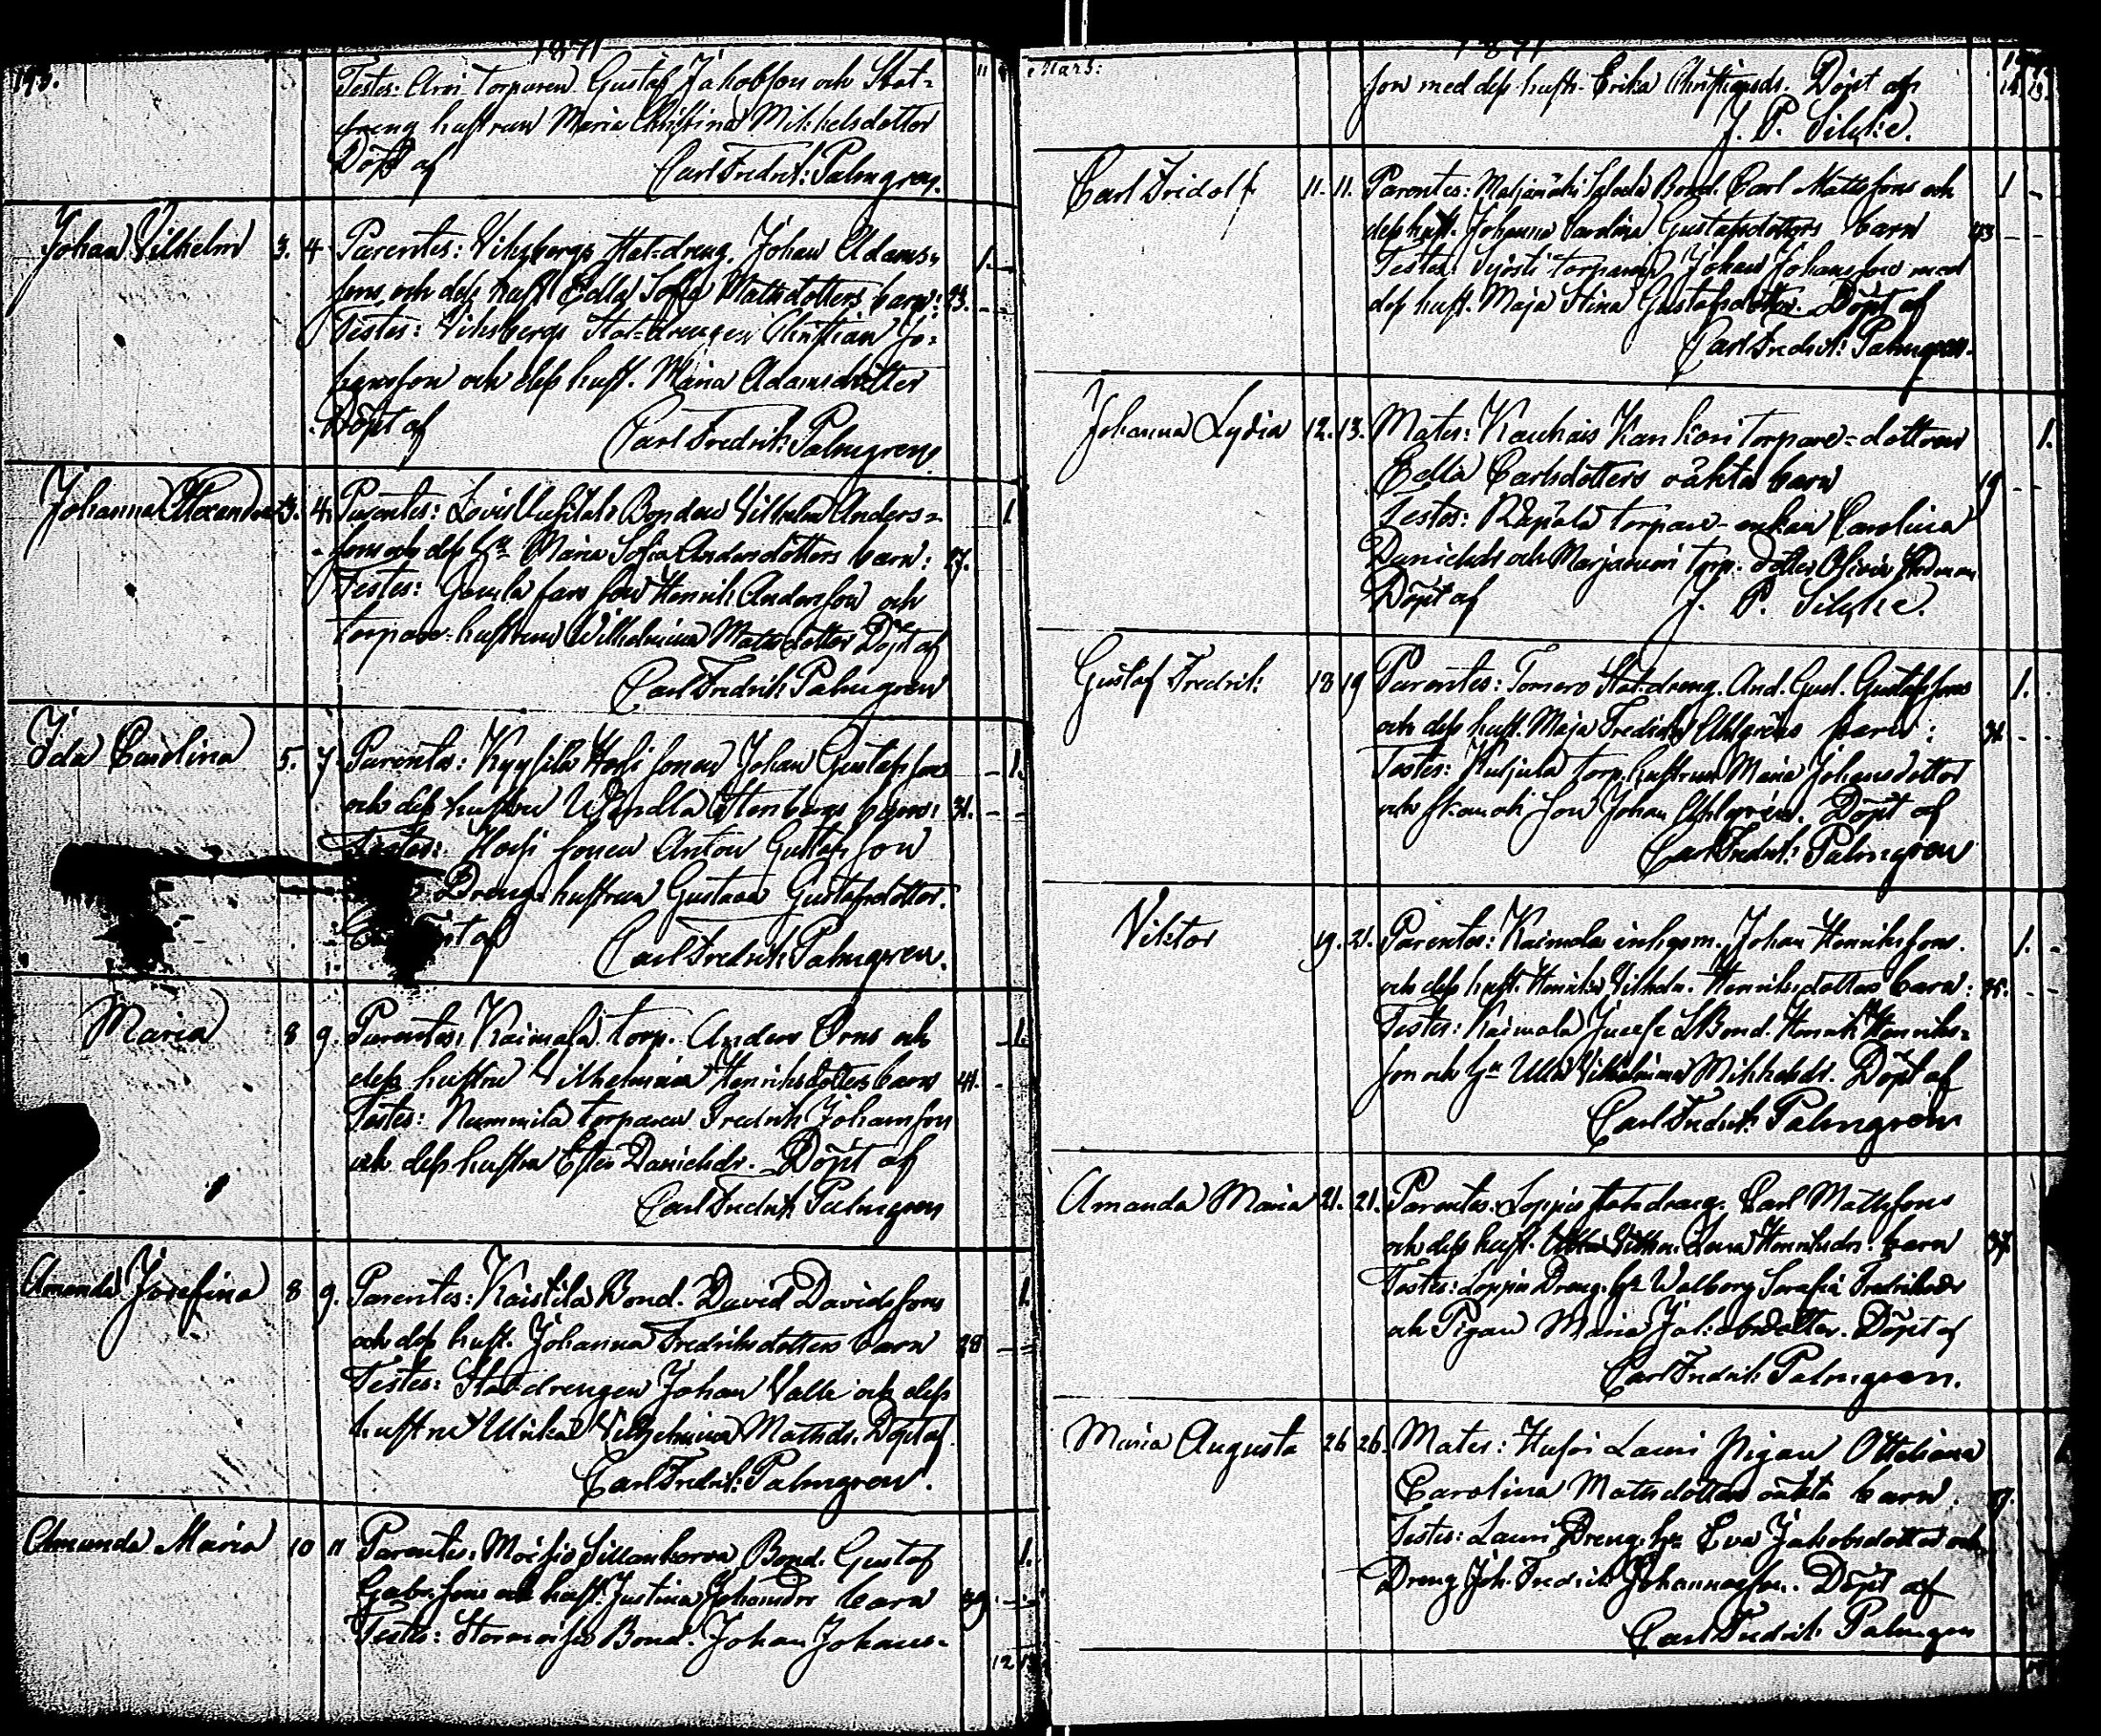 1871
Testes: Arvi torparen Gustaf Jakobsson och Stat-
dreng hustrun Maria Christina Mikkelsdotter
Döpt af Carl Fredrik: Palmgren.
Johan Vilhelm 3. 4. Parentes: Viksbergs Stat-dreng. Johan Adams-
sons och dess hust Edla Sofia Mattsdotters barn: 23.
Testes: Viksbergs Stat-drengen Christian Jo-
hansson och dess hust. Maria Adamsdotter
Döpt af Carl Fredrik: Palmgren.
Johanna Alexandra 3. 4. Parentes: Bonden Vilhelm Anders-
sons och dess Hu Maria Sofia Andersdotters barn: 27.
Testes: Gamla fars son Henrik Andersson och
torpare-hustrun Wilhelmina Matsdotter Döpt af
Carl Fredrik Palmgren
Ida Carolina 5. 7. Parentes: Kyysilä sonen Johan Gustafssons
och dess hustru Wendla Stenbergs barn: 31.
Testes: sonen Anton Gustafsson
Dreng hustrun Gustava Gustafsdotter.
Carl Fredrik Palmgren.
Maria 8 9. Parentes: Kaimala torp. Anders Örns och
dess hustru Vilhelmina Henriksdotters barn 41.
Testes: Nummila torparen Fredrik Johansson
och dess hustru Ester Danielsdr. Döpt af
Carl Fredrik Palmgren
Amanda Josefina 8 9. Parentes: Kaistila Bond. David Davidssons
och dess hust. Johanna Fredriksdotters barn 28
Testes: Stat-drengen Johan Valle och dess
hustru Ulrika Vilhelmina Mathsdr. Döpt af
Carl Fredrik: Palmgren.
Amanda Maria 10 11 Parentes: Moisio Sillankorva Bond. Gustaf
Gabr. sons och hust. Justina Johansdrs barn 39.
Testes: Bond. Johan Johans-
1871
Mars:
son med dess hustr. Erika Christiansdr. Döpt af
J. P. Silcke.
Carl Fridolf 11. 11. Parentes: Bond. Carl Mattssons och
dess hust. Johanna Carolina Gustafsdotters barn 43
Testes: torparen Johan Johansson med
dess hust. Maja Stina Gustafsdotter. Döpt af
Carl Fredrik: Palmgren.
Johanna Lydia 12. 13. Mater: Kauhais Kankari torpare-dottren
Edla Carlsdotters oäkta barn 19
Testes: Räpälä torpare-enkan Carolina
Danielsdr och Marjanieni torp. dotter Olivia
Döpt af J. P. Silcke.
Gustaf Fredrik: 18 19 Parentes: Tomero Stat-dreng. And. Gust. Gustafssons
och dess hust. Maja Fredrika Ahlgréns barn:
Testes: Kuljula torp. hustrun Maria Johansdotter
och son Johan Ahlgrén. Döpt af
Carl Fredrik: Palmgren
Viktor 19. 21. Parentes: Kaimala inhysm. Johan Henrikssons.
och dess hust. Henrika Vilhelm. Henriksdotters barn:
Testes: Kaimala Bond. Henrik Henriks-
son och Hu Ulla Vilhelmina Mikkelsdr. Döpt af
Carl Fredrik: Palmgren
Amanda Maria 21. 21. Parentes: Loppis statsdreng. Carl Mattssons
och dess hust. Lovisa Henriksdrs. barn 37.
Testes: Loppis Dreng. hu Walborg Serafia Fredriksdr
och Pigan Maria Jakobsdotter. Döpt af
Carl Fredrik Palmgren.
Maria Augusta 26 26. Mater: Lauri Pigan Otteliana
Carolina Matsdotters oäkta barn.
Testes: Lauri Dreng. hu Eva Jakobsdotter och
Dreng Joh. Fredrik Johannesson. Döpt af
Carl Fredrik Palmgren